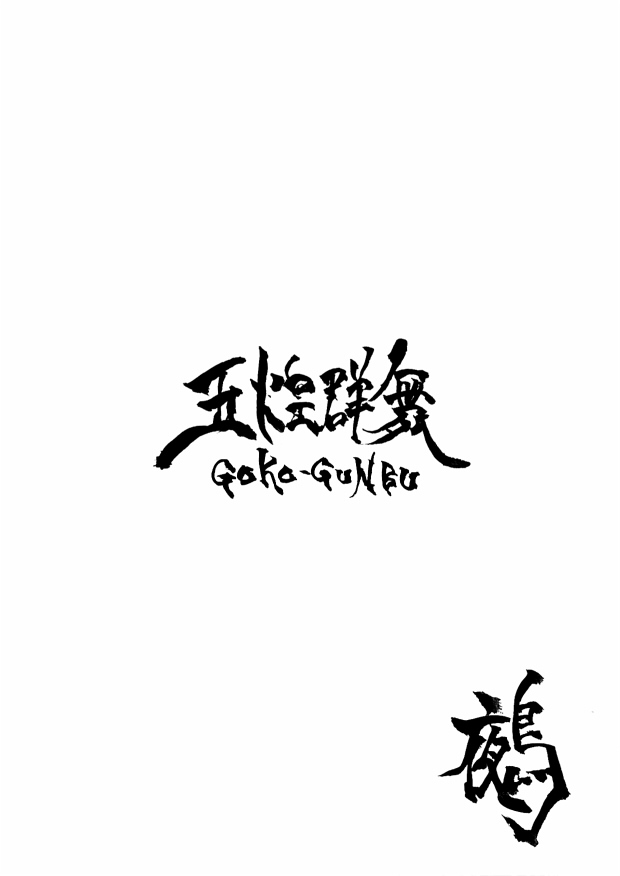 五煌群舞
GOKO-GUNBU
鵺